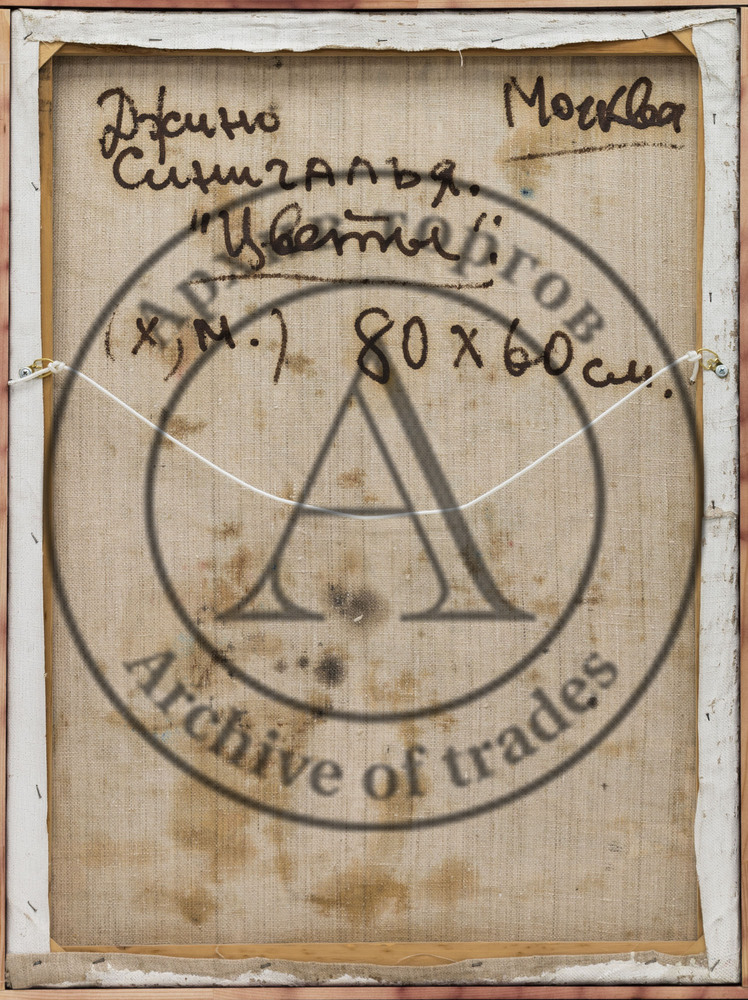 Джино Москва
Синигалья.
"Цветы".
(х, м.) 80 х 60 см.
Архив торгов
Archive of trades